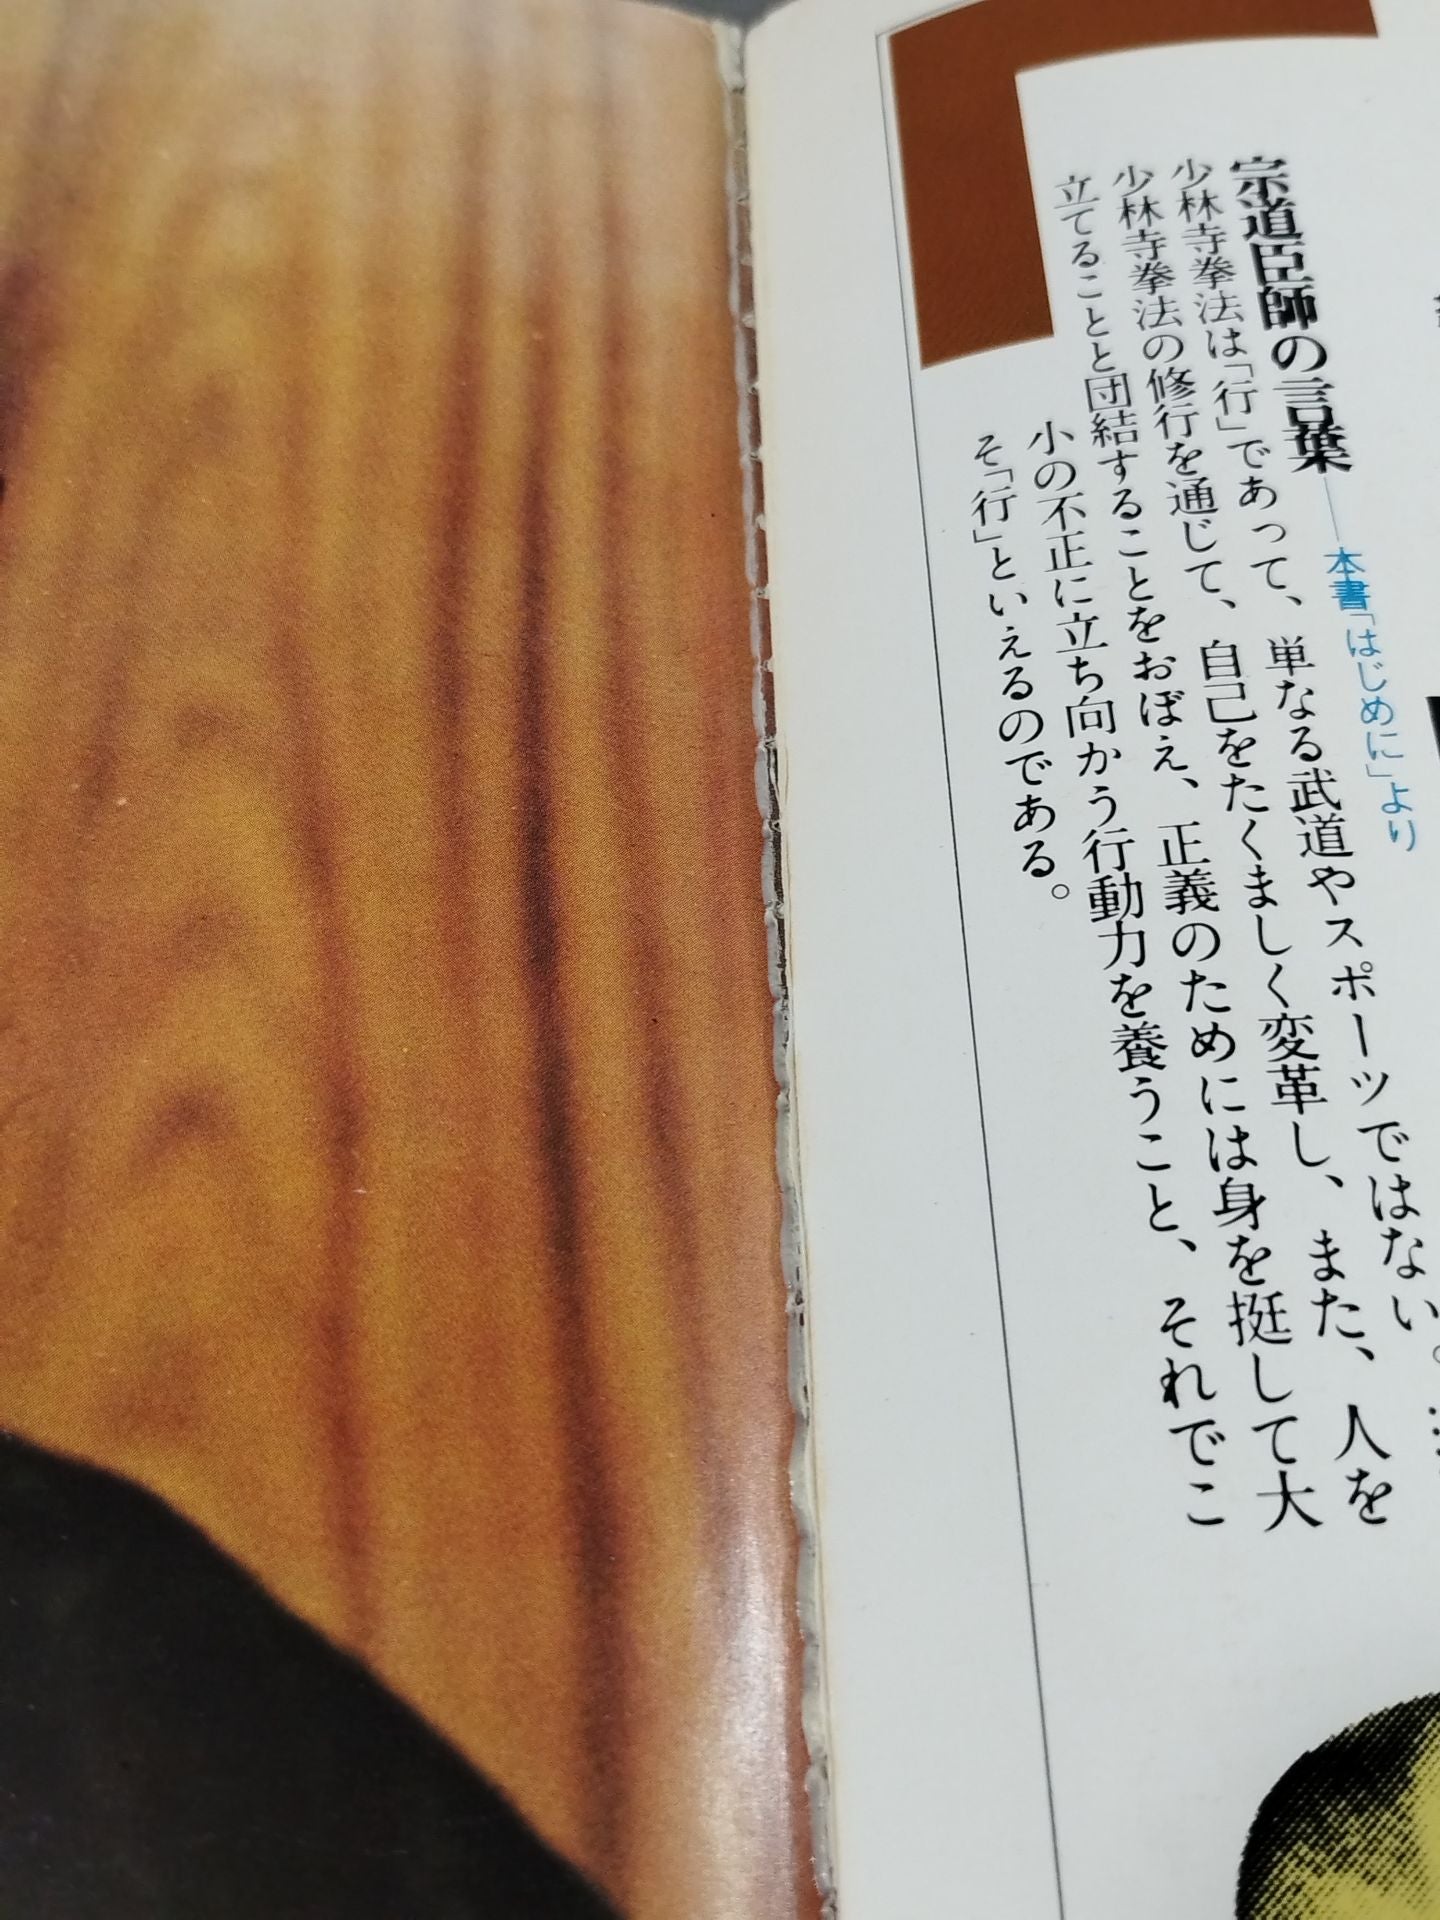 宗道臣師の言葉――本書「はじめに」より
少林寺拳法は「行」であって、単なる武道やスポーツではない。…
少林寺拳法の修行を通じて、自己をたくましく変革し、また、人を
立てることと団結することをおぼえ、正義のためには身を挺して大
小の不正に立ち向かう行動力を養うこと、それでこ
そ「行」といえるのである。